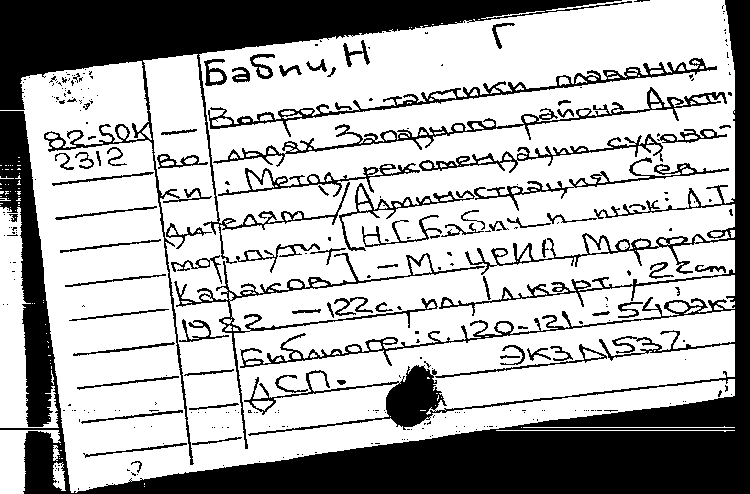 Бабич, Н Г
82-50К — Вопросы тактики плавания
2312 во льдах Западного района Аркти-
ки : Метод. рекомендации судово-
дителям / Администрация Сев.
мор. пути; [Н.Г Бабич и инж: Л.Т.
Казаков]. — М. : ЦРИА "Морфлот
1982. — 122с., ил., 1 л. карт ; 22см.
Библиогр. : с. 120-121. — 540экз
ДСП. ЭКЗ N537.